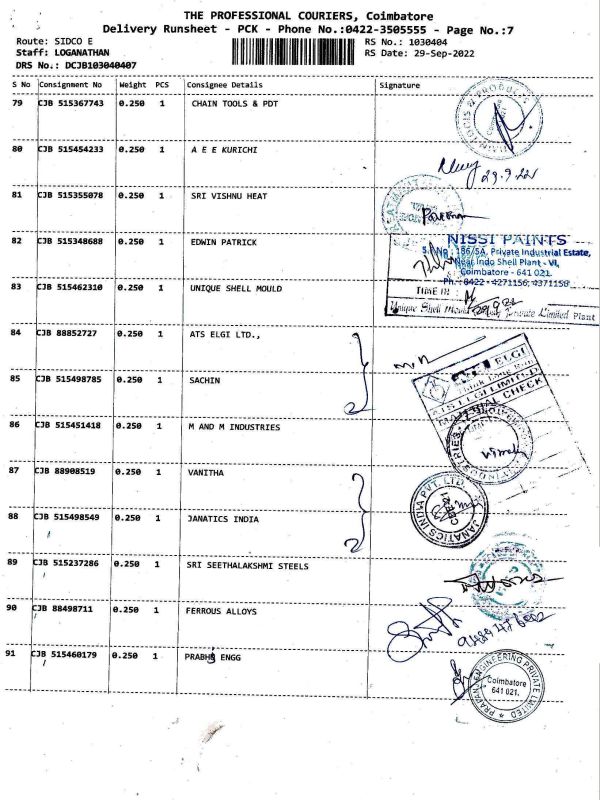 THE PROFESSIONAL COURIERS, Coimbatore
Delivery Runsheet - PCK - Phone No.:0422-3505555 - Page No.:7
Route: SIDCO E RS No.: 1030404
Staff: LOGANATHAN RS Date: 29-Sep-2022
DRS No.: DCJB103040407
S No Consignment No Weight PCS Consignee Details Signature
79 CJB 515367743 0.250 1 CHAIN TOOLS & PDT
80 CJB 515454233 0.250 1 A E E KURICHI
29.9.22
81 CJB 515355078 0.250 1 SRI VISHNU HEAT
82 CJB 515348688 0.250 1 EDWIN PATRICK
NISSI PAINTS
S.F.No : 186/5A, Private Industrial Estate,
Near Indo Shell Plant - VI,
Coimbatore - 641 021.
Ph : 0422 - 4271156, 4371156
83 CJB 515462310 0.250 1 UNIQUE SHELL MOULD
TIME IN :
Unique Shell Mould Private Limited Plant
84 CJB 88852727 0.250 1 ATS ELGI LTD.,
ATS ELGI LIMITED
MATERIAL CHECK
85 CJB 515498785 0.250 1 SACHIN
86 CJB 515451418 0.250 1 M AND M INDUSTRIES
87 CJB 88908519 0.250 1 VANITHA
88 CJB 515498549 0.250 1 JANATICS INDIA
JANATICS INDIA PVT. LTD.
89 CJB 515237286 0.250 1 SRI SEETHALAKSHMI STEELS
90 CJB 88498711 0.250 1 FERROUS ALLOYS
91 CJB 515460179 0.250 1 PRABHU ENGG
ENGINEERING PRIVATE LIMITED
Coimbatore
641 021.